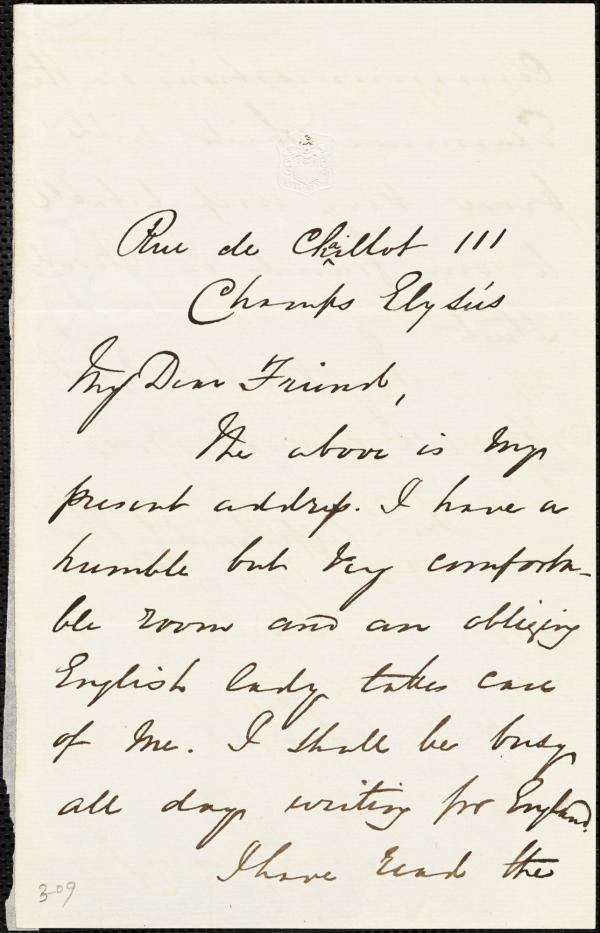 Rue de Chaillot 111
Champs Elysées
My Dear Friend,
The above is my
present address. I have a
humble but very comforta-
ble room and an obliging
English lady takes care
of me. I shall be busy
all day writing for England.
I have read the
309